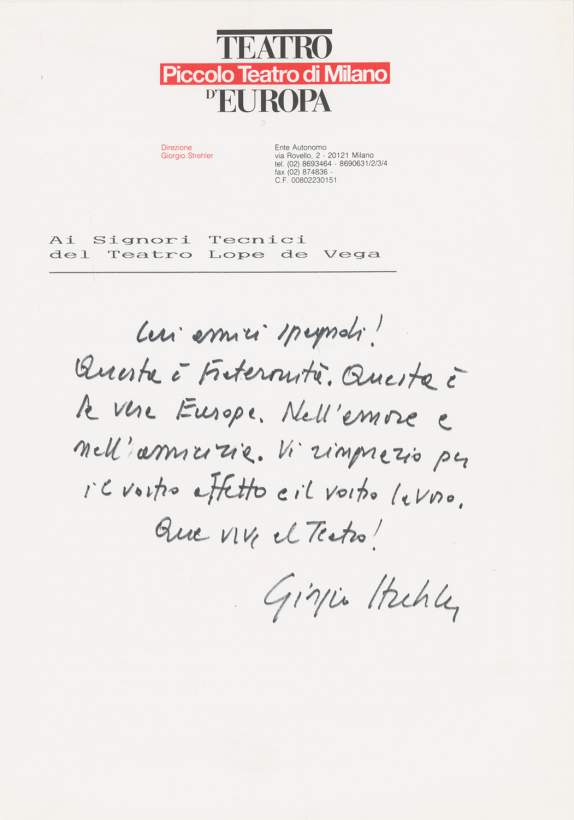 TEATRO
Piccolo Teatro di Milano
D'EUROPA
Direzione
Giorgio Strehler
Ente Autonomo
via Rovello, 2 - 20121 Milano
tel. (02) 8693464 - 8690631/2/3/4
fax (02) 874836 -
C.F. 00802230151
Ai Signori Tecnici
del Teatro Lope de Vega
Cari amici spagnoli!
Questa è Fraternità. Questa è
la vera Europa. Nell'amore e
nell'amicizia. Vi ringrazio per
il vostro affetto e il vostro lavoro.
Que viva el Teatro!
Giorgio Strehler